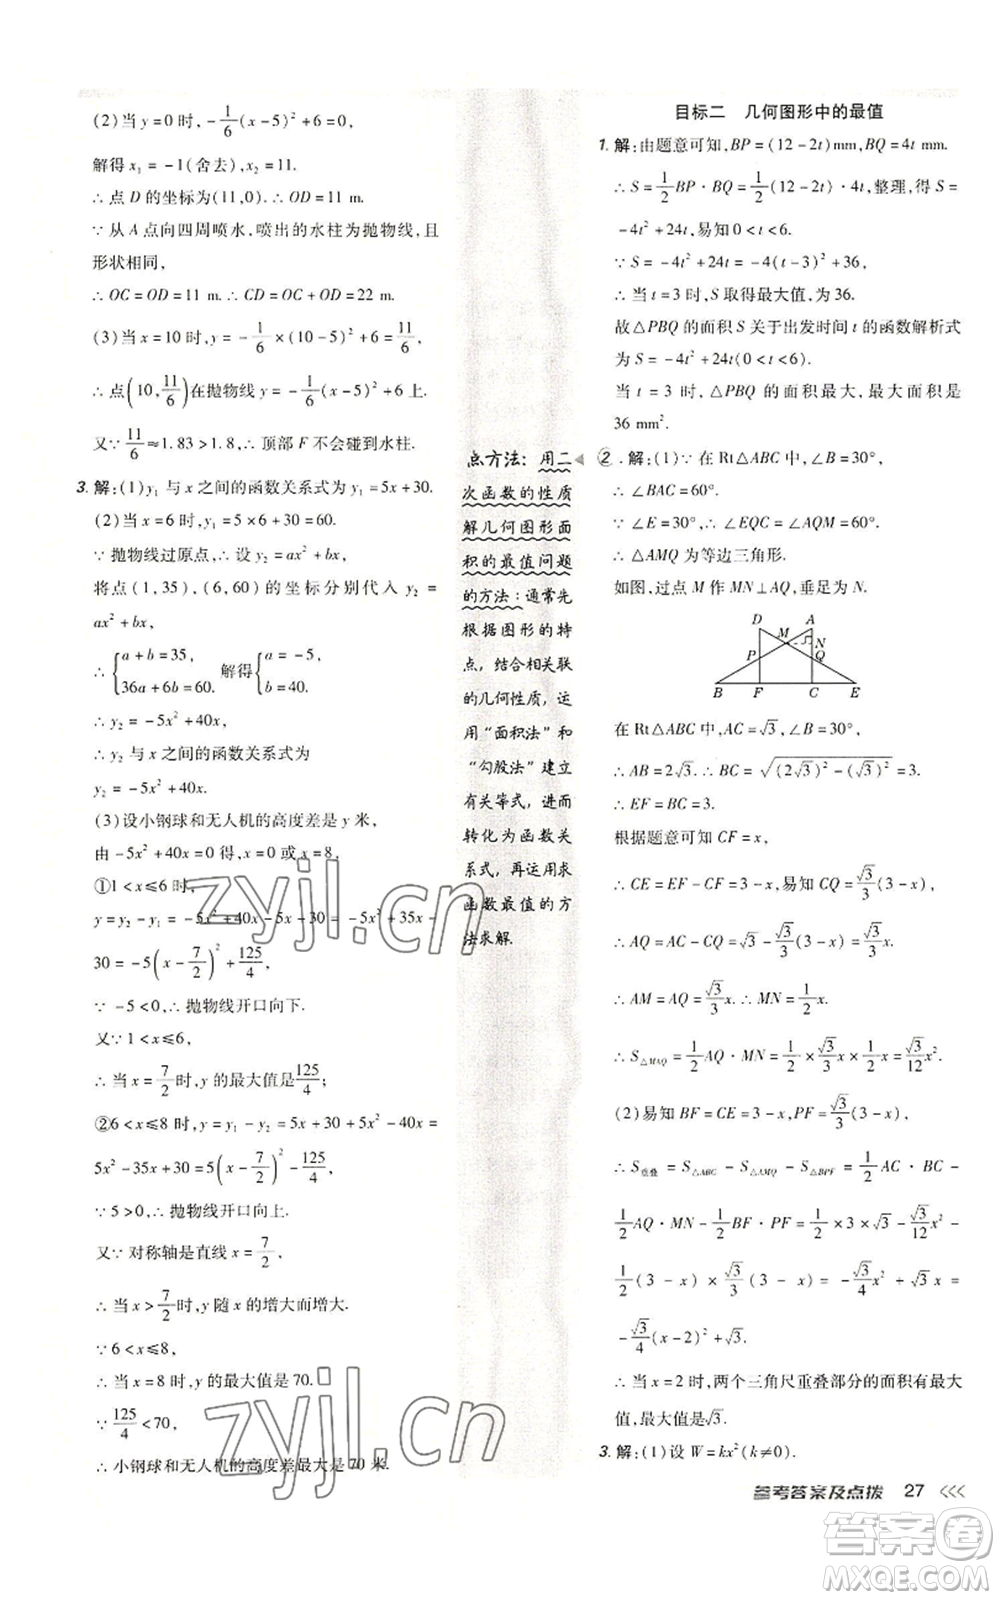 (2)当 y=0 时, -1/6(x-5)²+6=0,
解得 x₁=-1(舍去), x₂=11.
∴点 D 的坐标为(11,0). ∴OD=11 m.
∵从 A 点向四周喷水,喷出的水柱为抛物线,且
形状相同,
∴OC=OD=11 m. ∴CD=OC+OD=22 m.
(3)当 x=10 时, y=-1/6×(10-5)²+6=11/6,
∴点(10, 11/6)在抛物线 y=-1/6(x-5)²+6 上.
又∵11/6≈1.83>1.8, ∴顶部 F 不会碰到水柱.
3. 解:(1)y₁ 与 x 之间的函数关系式为 y₁=5x+30.
(2)当 x=6 时, y₁=5×6+30=60.
∵抛物线过原点, ∴设 y₂=ax²+bx,
将点(1,35),(6,60)的坐标分别代入 y₂=
ax²+bx,
∴{a+b=35, 36a+6b=60. 解得{a=-5, b=40.
∴y₂=-5x²+40x.
∴y₂ 与 x 之间的函数关系式为
y₂=-5x²+40x.
(3)设小钢球和无人机的高度差是 y 米,
由-5x²+40x=0 得, x=0 或 x=8,
①1<x≤6 时,
y=y₂-y₁=-5x²+40x-5x-30=-5x²+35x-
30=-5(x-7/2)²+125/4,
∵-5<0, ∴抛物线开口向下.
又∵1<x≤6,
∴当 x=7/2时, y 的最大值是125/4;
②6<x≤8 时, y=y₁-y₂=5x+30+5x²-40x=
5x²-35x+30=5(x-7/2)²-125/4,
∵5>0, ∴抛物线开口向上.
又∵对称轴是直线 x=7/2,
∴当 x>7/2时, y 随 x 的增大而增大.
∵6<x≤8,
∴当 x=8 时, y 的最大值是 70.
∵125/4<70,
∴小钢球和无人机的高度差最大是 70 米.
点方法:用二
次函数的性质
解几何图形面
积的最值问题
的方法:通常先
根据图形的特
点,结合相关联
的几何性质,运
用“面积法”和
“勾股法”建立
有关等式,进而
转化为函数关
系式,再运用求
函数最值的方
法求解.
目标二 几何图形中的最值
1. 解:由题意可知, BP=(12-2t)mm, BQ=4t mm.
∴S=1/2BP·BQ=1/2(12-2t)·4t,整理,得 S=
-4t²+24t,易知 0<t<6.
∵S=-4t²+24t=-4(t-3)²+36,
∴当 t=3 时, S 取得最大值,为 36.
故△PBQ 的面积 S 关于出发时间 t 的函数解析式
为 S=-4t²+24t(0<t<6).
当 t=3 时, △PBQ 的面积最大,最大面积是
36 mm².
2. 解:(1)∵在 Rt△ABC 中, ∠B=30°,
∴∠BAC=60°.
∵∠E=30°, ∴∠EQC=∠AQM=60°.
∴△AMQ 为等边三角形.
如图,过点 M 作 MN⊥AQ,垂足为 N.
D A
M N
P Q
B F C E
在 Rt△ABC 中, AC=√3, ∠B=30°,
∴AB=2√3. ∴BC=√((2√3)²-(√3)²)=3.
∴EF=BC=3.
根据题意可知 CF=x,
∴CE=EF-CF=3-x,易知 CQ=√3/3(3-x),
∴AQ=AC-CQ=√3-√3/3(3-x)=√3/3x.
∴AM=AQ=√3/3x. ∴MN=1/2x.
∴S△MAQ=1/2AQ·MN=1/2×√3/3x×1/2x=√3/12x².
(2)易知 BF=CE=3-x, PF=√3/3(3-x),
∴S重叠=S△ABC-S△AMQ-S△BPF=1/2AC·BC-
1/2AQ·MN-1/2BF·PF=1/2×3×√3-√3/12x²-
1/2(3-x)×√3/3(3-x)=-√3/4x²+√3x=
-√3/4(x-2)²+√3.
∴当 x=2 时,两个三角尺重叠部分的面积有最大
值,最大值是√3.
3. 解:(1)设 W=kx²(k≠0).
参考答案及点拨 27 <<<
zyjl.cn
zyjl.cn
答案圈
MXQE.COM